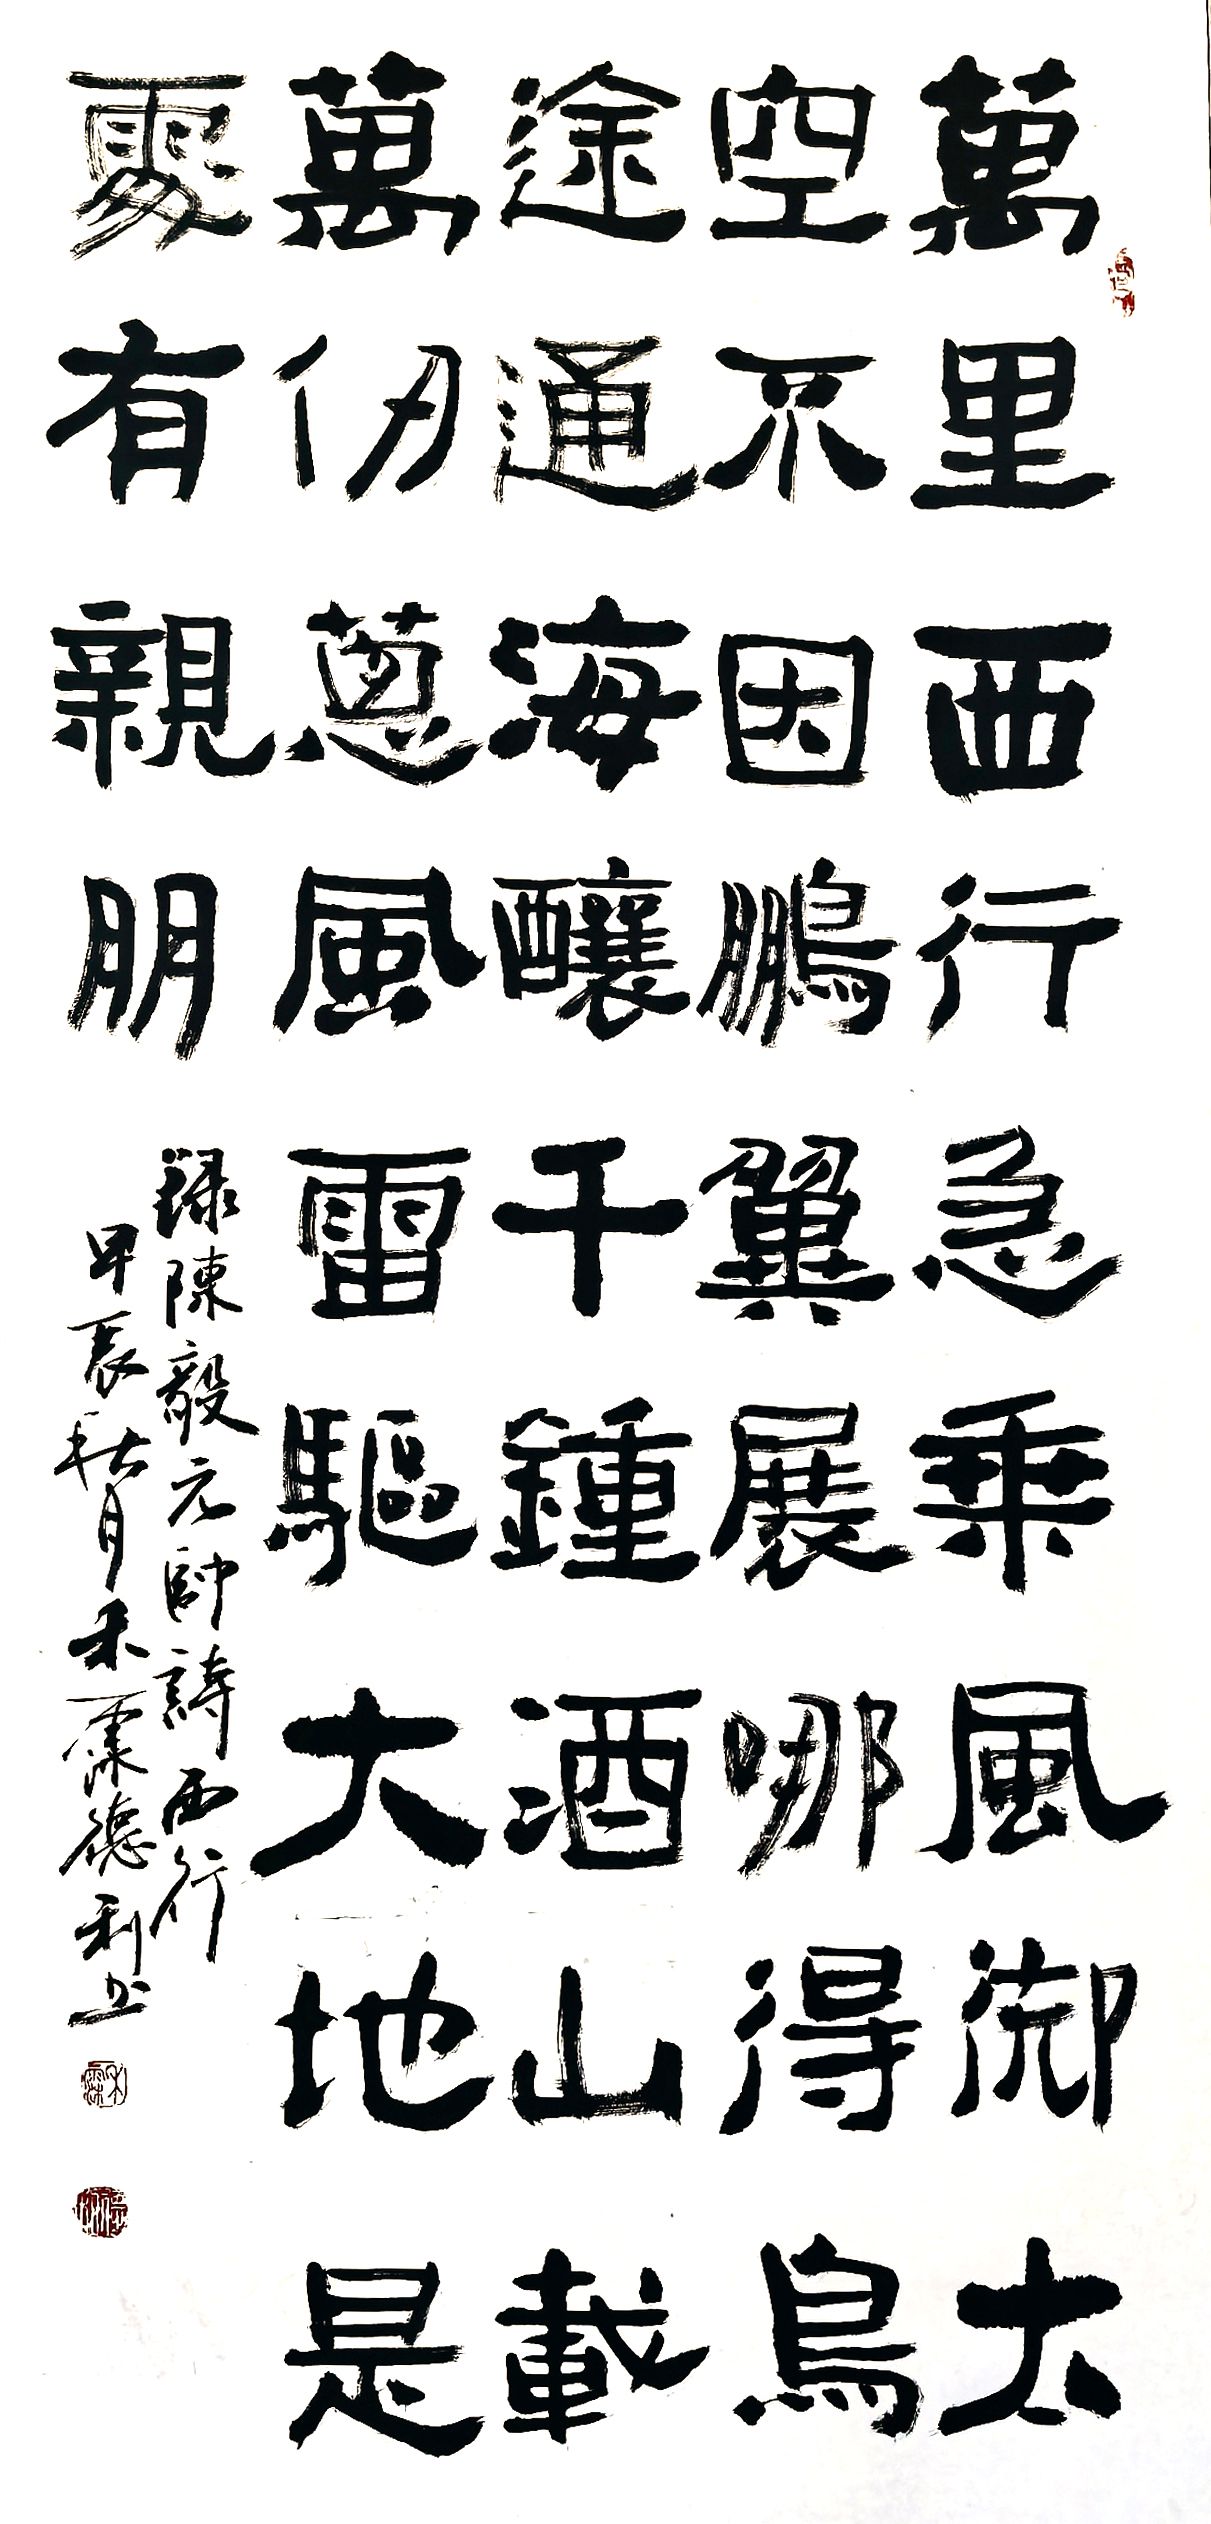 萬里西行急乘風御太
空不因鵬翼展哪得鳥
途通海釀千鍾酒山載
萬仞蔥風雷驅大地是
處有親朋
錄陳毅元帥詩西行
甲辰秋月禾霂德利书